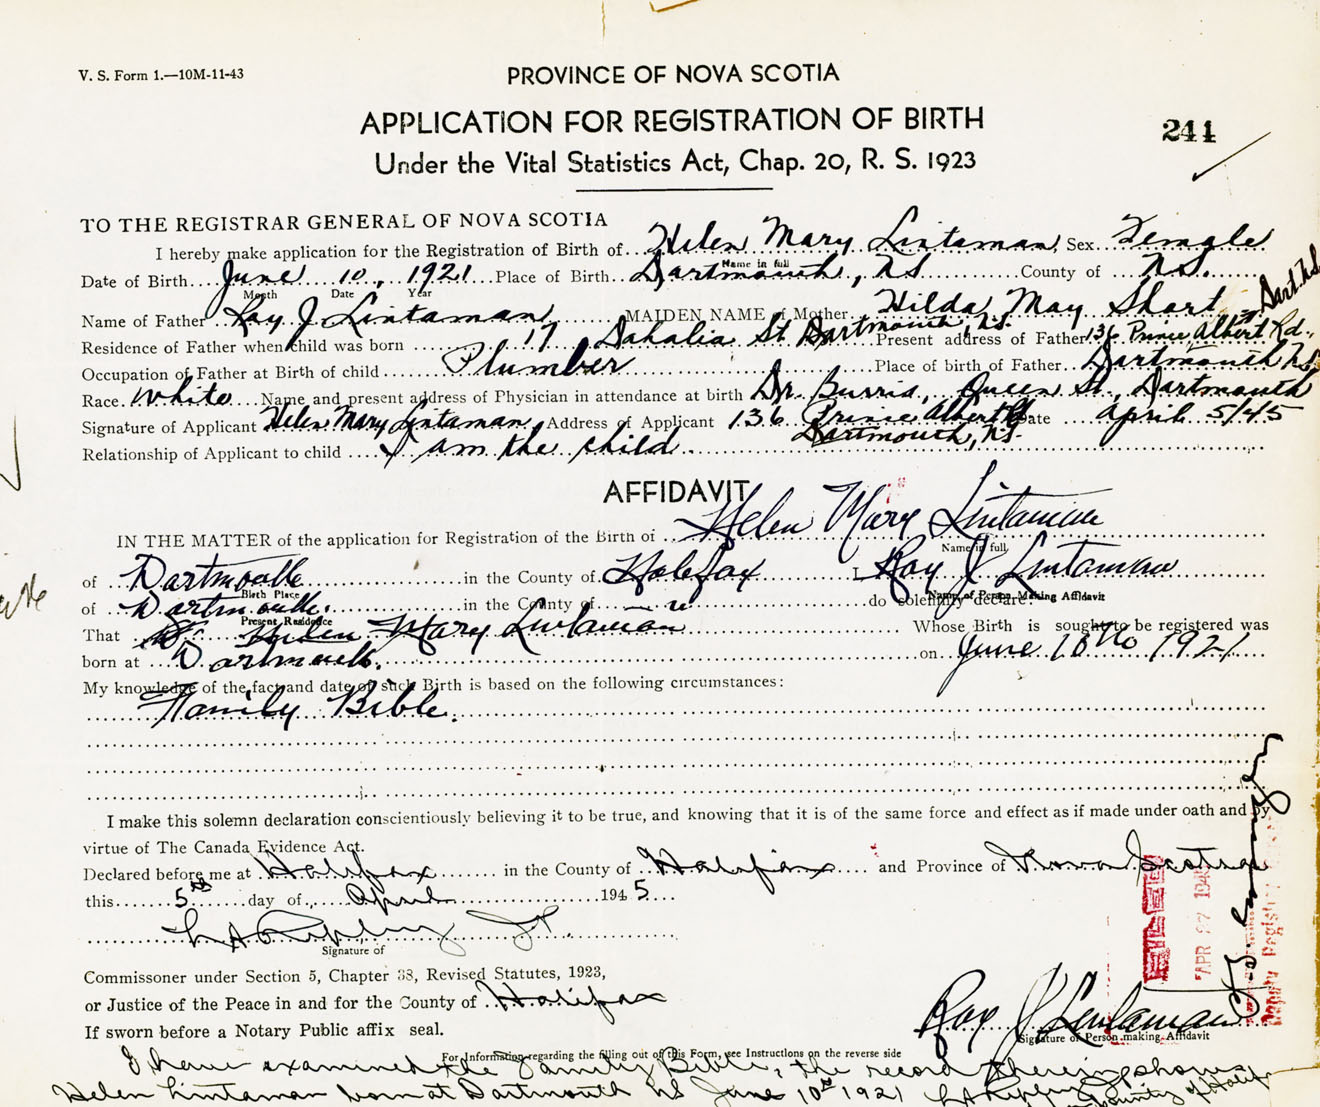 V. S. Form 1.—10M-11-43
PROVINCE OF NOVA SCOTIA
APPLICATION FOR REGISTRATION OF BIRTH
241
Under the Vital Statistics Act, Chap. 20, R. S. 1923
TO THE REGISTRAR GENERAL OF NOVA SCOTIA
I hereby make application for the Registration of Birth of Helen Mary Lintaman, Sex Female
Name in full
Date of Birth June 10, 1921 Place of Birth Dartmouth, NS County of NS.
Month Date Year
Name of Father Roy J Lintaman MAIDEN NAME of Mother Hilda May Short
Residence of Father when child was born 17 Dahalia St Dartmouth, NS. Present address of Father 136 Prince Albert Rd., Dart. NS
Occupation of Father at Birth of child Plumber Place of birth of Father Dartmouth NS
Race White Name and present address of Physician in attendance at birth Dr. Burris, Queen St., Dartmouth
Signature of Applicant Helen Mary Lintaman Address of Applicant 136 Prince Albert Rd Date April 5/45
Dartmouth, NS.
Relationship of Applicant to child I am the child.
AFFIDAVIT
IN THE MATTER of the application for Registration of the Birth of Helen Mary Lintaman
Name in full
of Dartmouth in the County of Halifax I Roy J Lintaman
Birth Place Name of Person Making Affidavit
of Dartmouth. in the County of — " do solemnly declare:
Present Residence
That Helen Mary Lintaman Whose Birth is sought to be registered was
born at Dartmouth. on June 10th 1921
My knowledge of the fact and date of such Birth is based on the following circumstances:
Family Bible.
I make this solemn declaration conscientiously believing it to be true, and knowing that it is of the same force and effect as if made under oath and by
virtue of The Canada Evidence Act.
Declared before me at Halifax in the County of Halifax and Province of Nova Scotia
this 5th day of April 1945
Signature of
Commissoner under Section 5, Chapter 38, Revised Statutes, 1923,
or Justice of the Peace in and for the County of Halifax
If sworn before a Notary Public affix seal.
Roy J Lintaman
Signature of Person making Affidavit
FILED
APR 27 194
Deputy Registrar
For Information regarding the filling out of this Form, see Instructions on the reverse side
I have examined the Family Bible, the record therein shows
Helen Lintaman born at Dartmouth NS June 10th 1921
County of Halifax